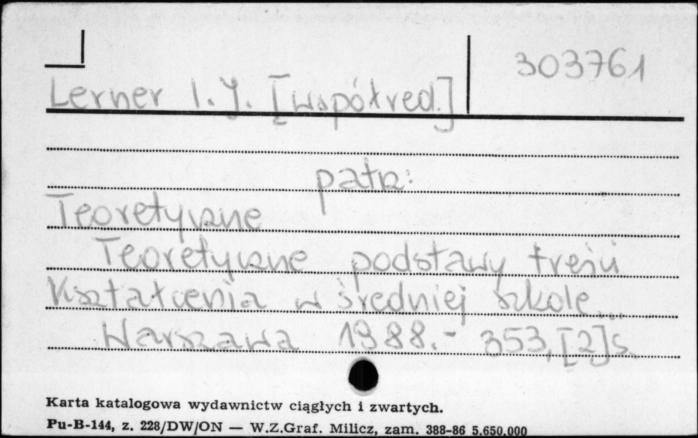 303761
Lerner I. J. [współred.]
patrz:
Teoretyczne
Teoretyczne podstawy treści
kształcenia w średniej szkole...
Warszawa 1988.- 353, [2] s.
Karta katalogowa wydawnictw ciągłych i zwartych.
Pu-B-144, z. 228/DW/ON — W.Z.Graf. Milicz, zam. 388-86 5.650.000